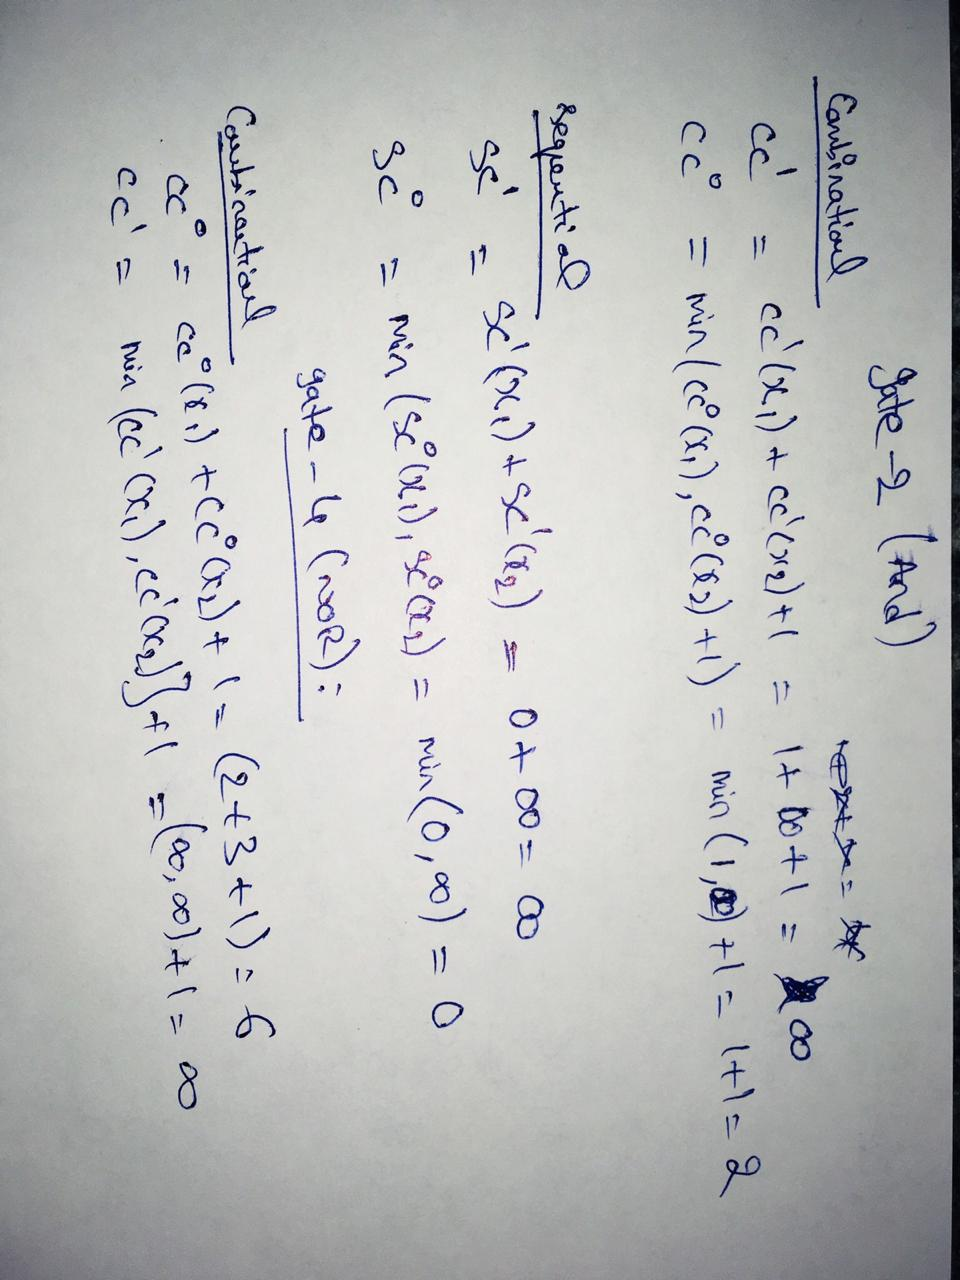 gate - 2 (And)
Combinational
CC¹ = CC¹(x₁) + CC¹(x₂) + 1 = 1 + ∞ + 1 = ∞
CC⁰ = min(CC⁰(x₁), CC⁰(x₂) + 1) = min(1, ∞) + 1 = 1+1 = 2
Sequential
SC¹ = SC¹(x₁) + SC¹(x₂) = 0 + ∞ = ∞
SC⁰ = min(SC⁰(x₁), SC⁰(x₂) = min(0, ∞) = 0
gate - 4 (NOR):
Combinational
CC⁰ = CC⁰(x₁) + CC⁰(x₂) + 1 = (2 + 3 + 1) = 6
CC¹ = min (CC¹(x₁), CC¹(x₂)} + 1 = (∞, ∞) + 1 = ∞